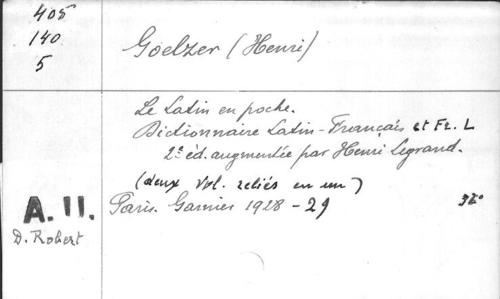 405
140
5
Goelzer (Henri)
Le Latin en poche.
Dictionnaire Latin-Français et Fr. L
2e éd. augmentée par Henri Legrand.
(deux vol. reliés en un)
A. II.
Paris. Garnier 1928 - 29
32°
D. Robert